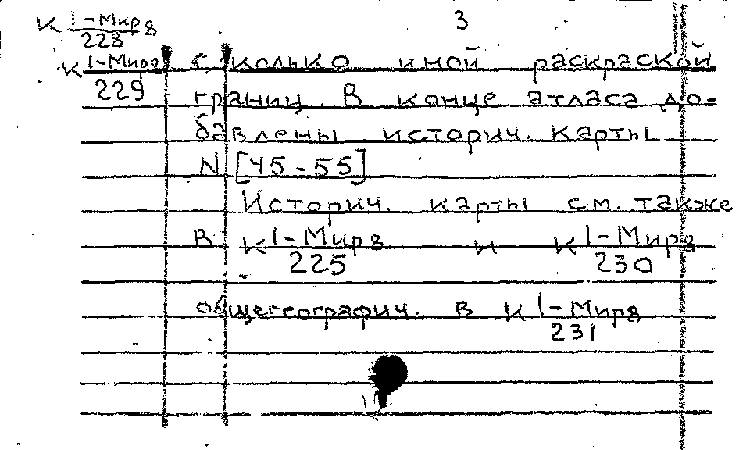 3
К 1-Мир8
228
К 1-Мир8
229
сколько иной раскраской
границ. В конце атласа до-
бавлены историч. карты
N [45-55]
Историч. карты см. также
в К 1-Мир8 и К 1-Мир8
225 230
общегеографич. в К 1-Мир8
231